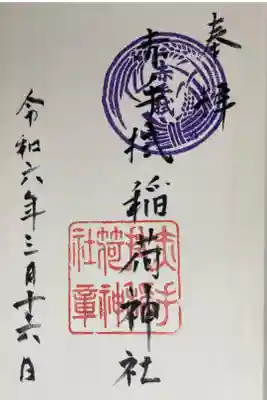 奉拝
赤手拭稲荷神社
令和六年三月十六日
赤手拭稲荷神社章